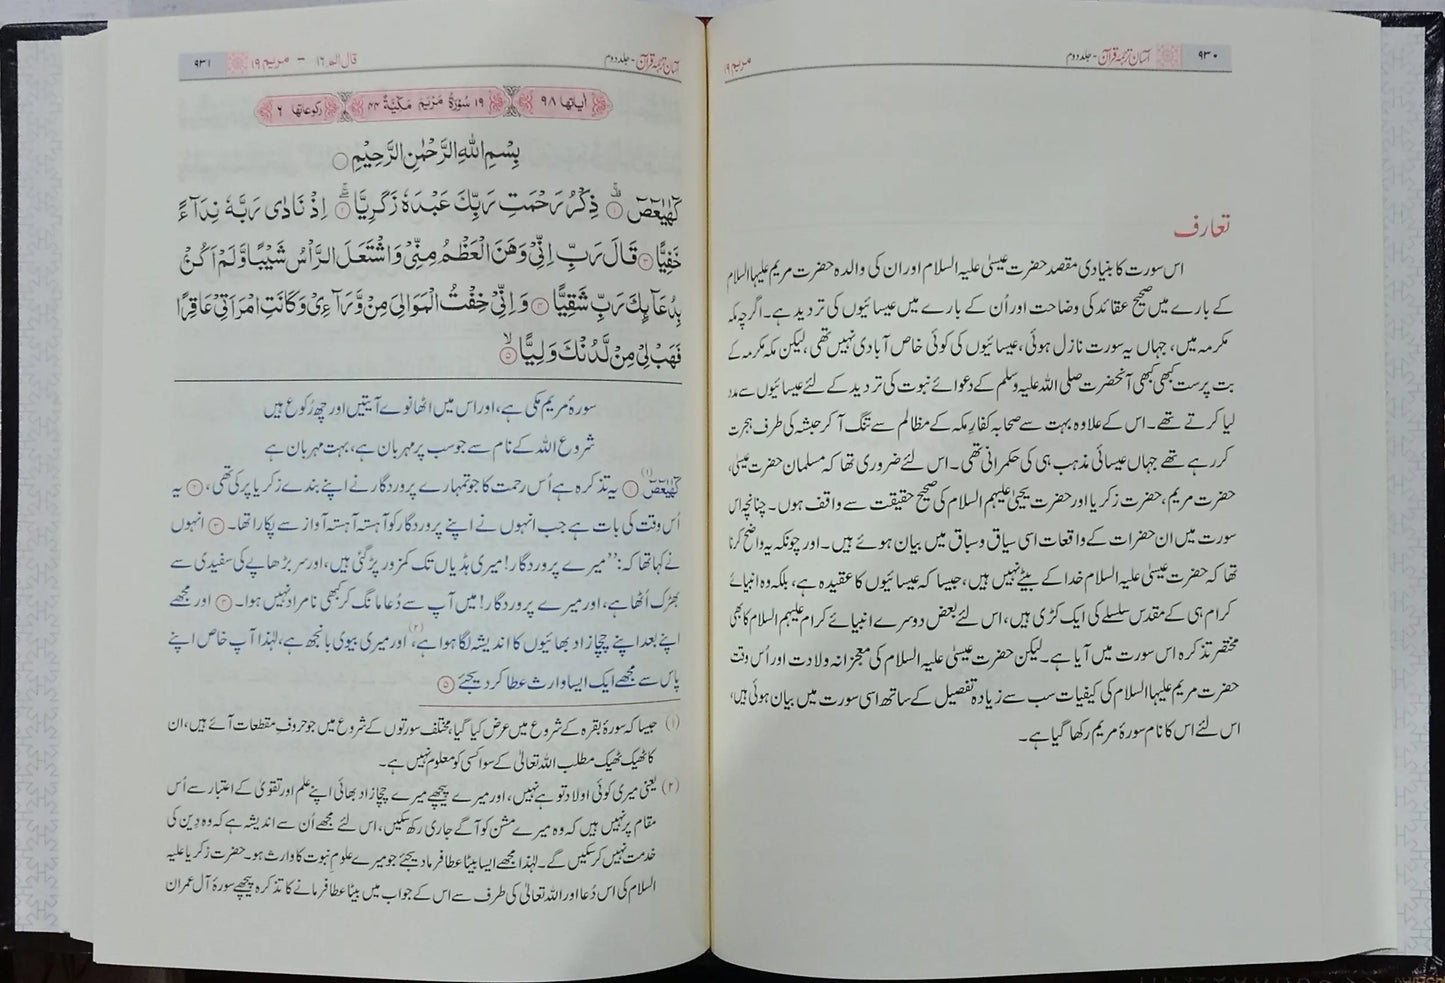 ۹۳۰ آسان ترجمۂ قرآن - جلد دوم مریم ۱۹
تعارف
اس سورت کا بنیادی مقصد حضرت عیسیٰ علیہ السلام اور ان کی والدہ حضرت مریم علیہا السلام
کے بارے میں صحیح عقائد کی وضاحت اور اُن کے بارے میں عیسائیوں کی تردید ہے۔ اگرچہ مکہ
مکرمہ میں، جہاں یہ سورت نازل ہوئی، عیسائیوں کی کوئی خاص آبادی نہیں تھی، لیکن مکہ مکرمہ کے
بت پرست کبھی کبھی آنحضرت صلی اللہ علیہ وسلم کے دعوائے نبوت کی تردید کے لئے عیسائیوں سے مدد
لیا کرتے تھے۔ اس کے علاوہ بہت سے صحابہ کفارِ مکہ کے مظالم سے تنگ آ کر حبشہ کی طرف ہجرت
کر رہے تھے جہاں عیسائی مذہب ہی کی حکمرانی تھی۔ اس لئے ضروری تھا کہ مسلمان حضرت عیسیٰ،
حضرت مریم، حضرت زکریا اور حضرت یحییٰ علیہم السلام کی صحیح حقیقت سے واقف ہوں۔ چنانچہ اس
سورت میں ان حضرات کے واقعات اسی سیاق و سباق میں بیان ہوئے ہیں۔ اور چونکہ یہ واضح کرنا
تھا کہ حضرت عیسیٰ علیہ السلام خدا کے بیٹے نہیں ہیں، جیسا کہ عیسائیوں کا عقیدہ ہے، بلکہ وہ انبیائے
کرام ہی کے مقدس سلسلے کی ایک کڑی ہیں، اس لئے بعض دوسرے انبیائے کرام علیہم السلام کا بھی
مختصر تذکرہ اس سورت میں آیا ہے۔ لیکن حضرت عیسیٰ علیہ السلام کی معجزانہ ولادت اور اُس وقت
حضرت مریم علیہا السلام کی کیفیات سب سے زیادہ تفصیل کے ساتھ اسی سورت میں بیان ہوئی ہیں،
اس لئے اس کا نام سورۂ مریم رکھا گیا ہے۔
آسان ترجمۂ قرآن - جلد دوم قال الم ۱۶ - مریم ۱۹ ۹۳۱
اٰیاتها ۹۸ ۱۹ سُوْرَةُ مَرْيَمَ مَكِّيَّةٌ ۴۴ رکوعاتها ۶
بِسْمِ اللّٰهِ الرَّحْمٰنِ الرَّحِيْمِ
كٓهٰيٰعٓصٓ ۱ ذِكْرُ رَحْمَتِ رَبِّكَ عَبْدَهٗ زَكَرِيَّا ۲ اِذْ نَادٰى رَبَّهٗ نِدَآءً
خَفِيًّا ۳ قَالَ رَبِّ اِنِّيْ وَهَنَ الْعَظْمُ مِنِّيْ وَاشْتَعَلَ الرَّاْسُ شَيْبًا وَّلَمْ اَكُنْۢ
بِدُعَآئِكَ رَبِّ شَقِيًّا ۴ وَاِنِّيْ خِفْتُ الْمَوَالِيَ مِنْ وَّرَآءِيْ وَكَانَتِ امْرَاَتِيْ عَاقِرًا
فَهَبْ لِيْ مِنْ لَّدُنْكَ وَلِيًّا ۵
سورۂ مریم مکی ہے، اور اس میں اٹھانوے آیتیں اور چھ رُکوع ہیں
شروع اللہ کے نام سے جو سب پر مہربان ہے، بہت مہربان ہے
كٓهٰيٰعٓصٓ (۱) ۱ یہ تذکرہ ہے اُس رحمت کا جو تمہارے پروردگار نے اپنے بندے زکریا پر کی تھی، ۲ یہ
اُس وقت کی بات ہے جب انہوں نے اپنے پروردگار کو آہستہ آہستہ آواز سے پکارا تھا۔ ۳ انہوں
نے کہا تھا کہ: ”میرے پروردگار! میری ہڈیاں تک کمزور پڑ گئی ہیں، اور سر بڑھاپے کی سفیدی سے
بھڑک اُٹھا ہے، اور میرے پروردگار! میں آپ سے دُعا مانگ کر کبھی نامراد نہیں ہوا۔ ۴ اور مجھے
اپنے بعد اپنے چچازاد بھائیوں کا اندیشہ لگا ہوا ہے، (۲) اور میری بیوی بانجھ ہے، لہٰذا آپ خاص اپنے
پاس سے مجھے ایک ایسا وارث عطا کر دیجئے ۵
(۱) جیسا کہ سورۂ بقرہ کے شروع میں عرض کیا گیا، مختلف سورتوں کے شروع میں جو حروفِ مقطعات آئے ہیں، ان
کا ٹھیک ٹھیک مطلب اللہ تعالیٰ کے سوا کسی کو معلوم نہیں ہے۔
(۲) یعنی میری کوئی اولاد تو ہے نہیں، اور میرے پیچھے میرے چچازاد بھائی اپنے علم اور تقویٰ کے اعتبار سے اُس
مقام پر نہیں ہیں کہ وہ میرے مشن کو آگے جاری رکھ سکیں، اس لئے مجھے اُن سے اندیشہ ہے کہ وہ دِین کی
خدمت نہیں کر سکیں گے۔ لہٰذا مجھے ایسا بیٹا عطا فرما دیجئے جو میرے علومِ نبوت کا وارث ہو۔ حضرت زکریا علیہ
السلام کی اس دُعا اور اللہ تعالیٰ کی طرف سے اس کے جواب میں بیٹا عطا فرمانے کا تذکرہ پیچھے سورۂ آل عمران